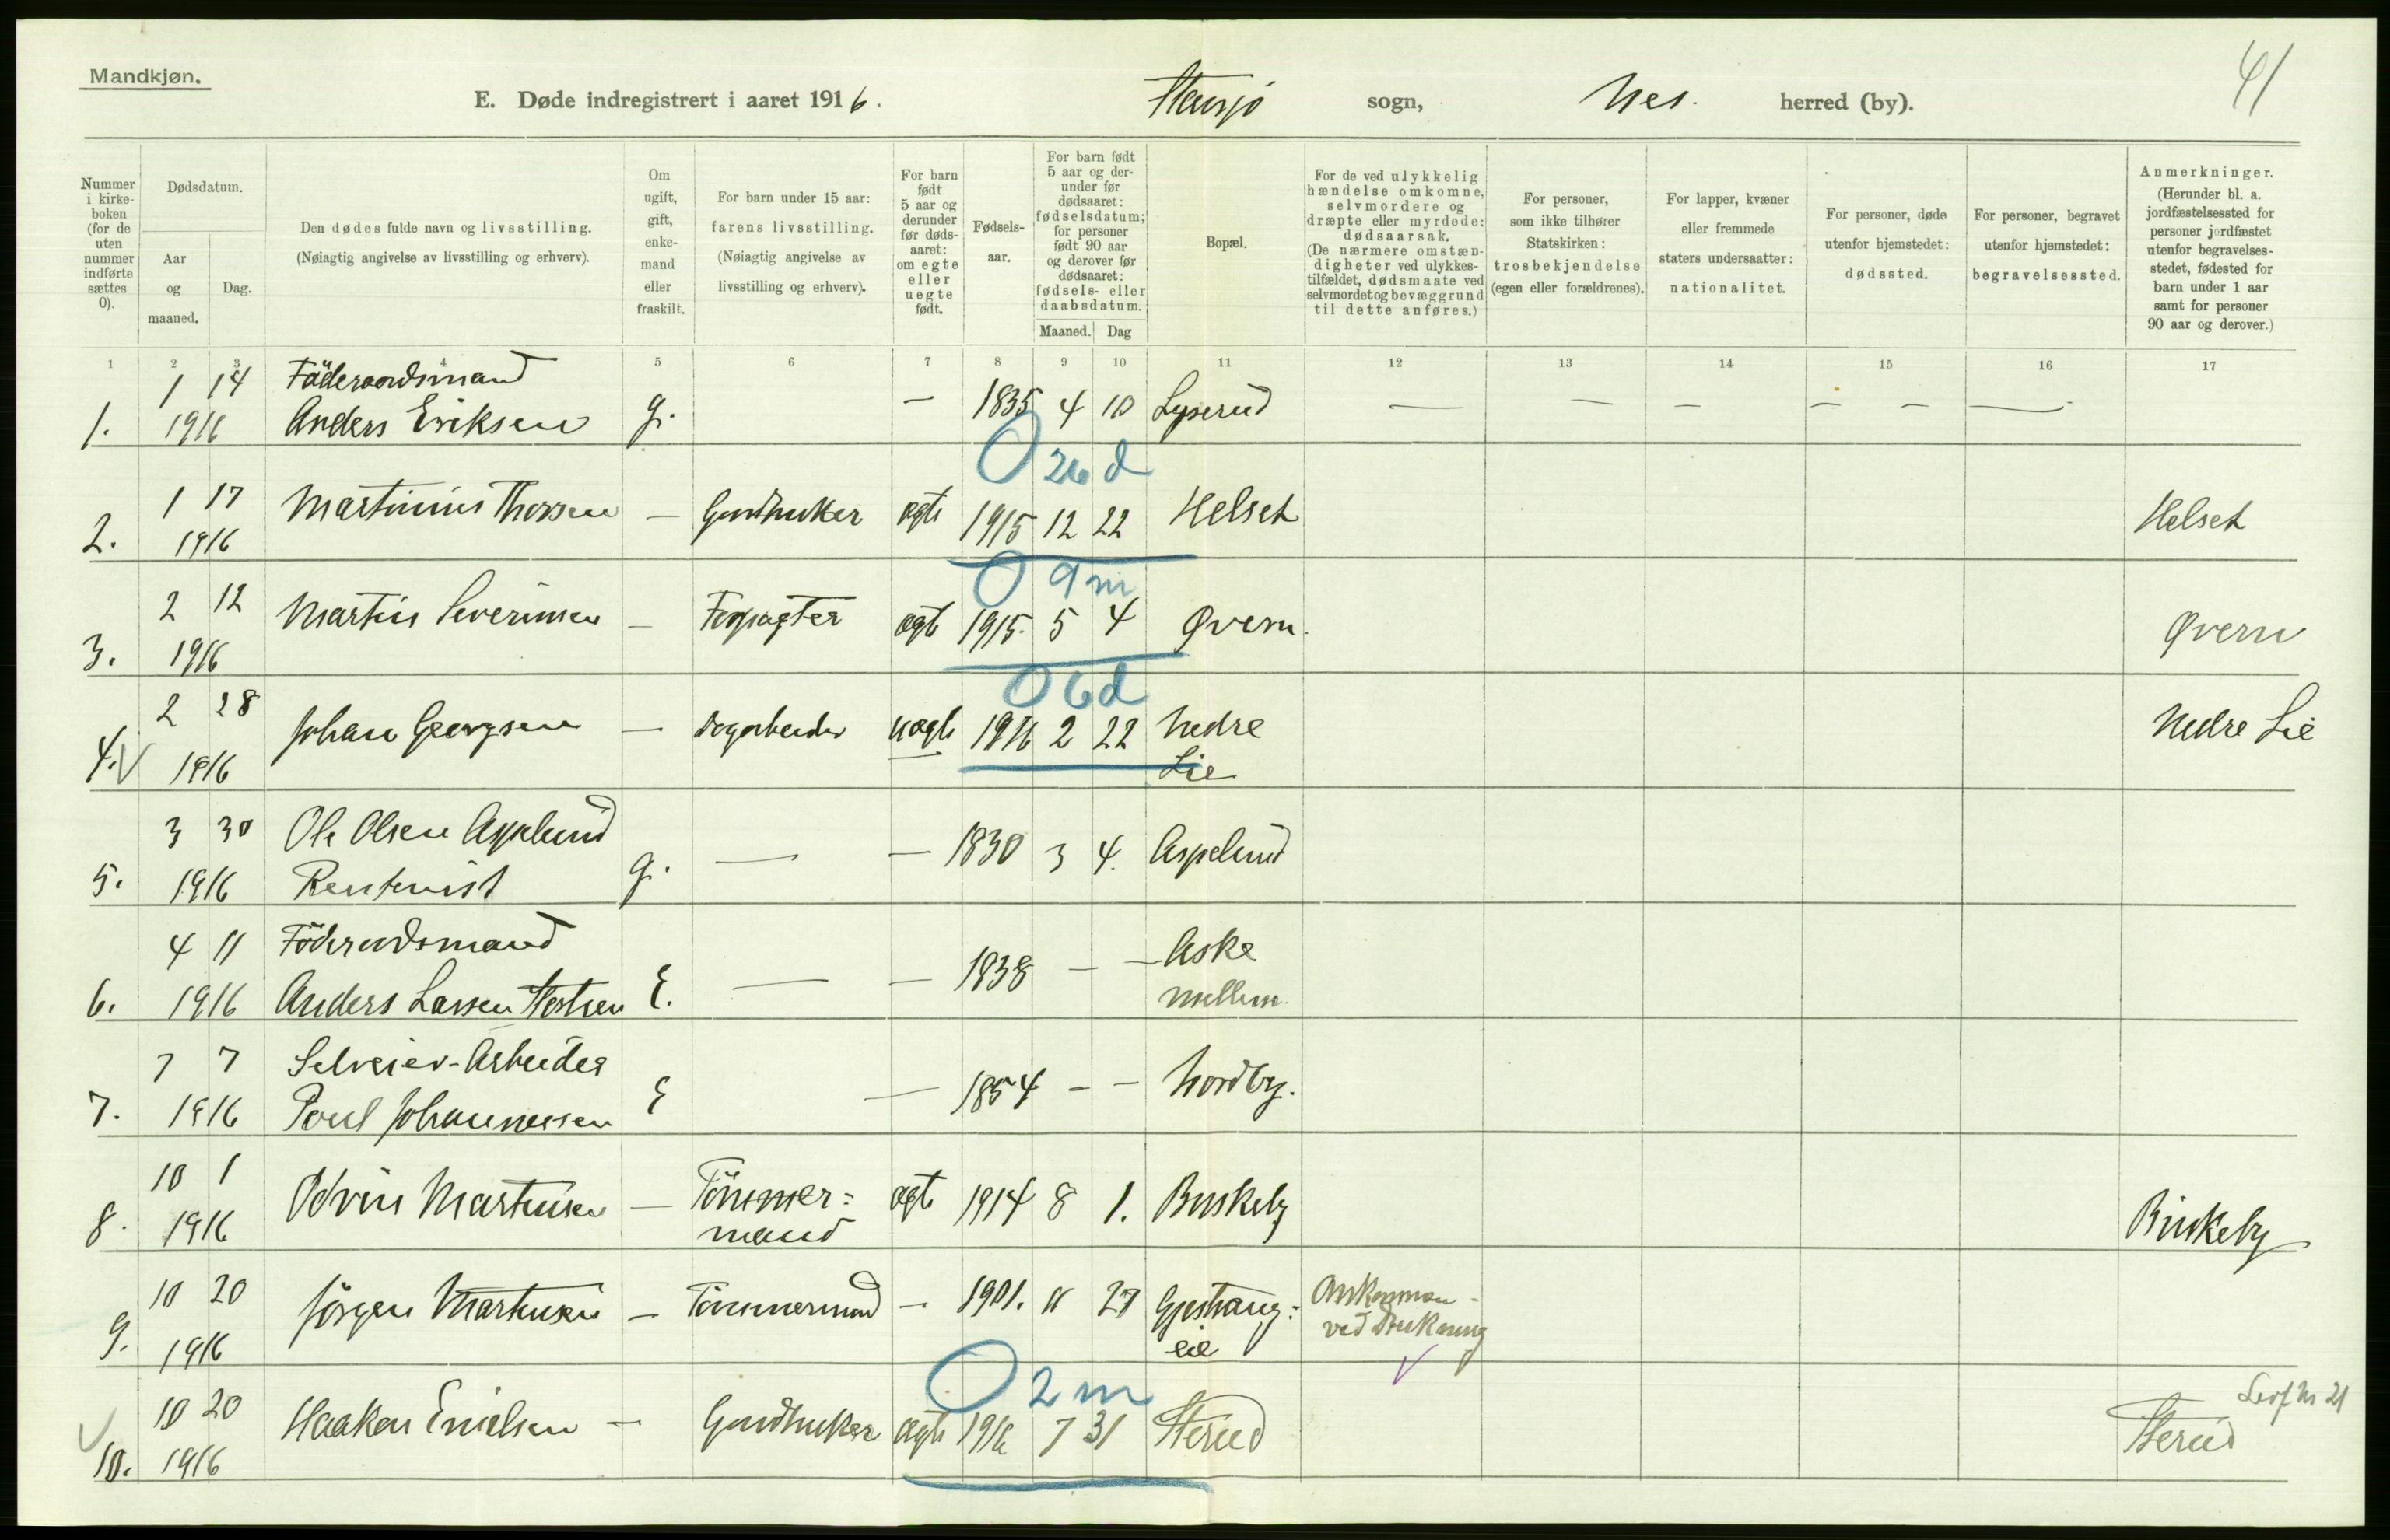 Mandkjøn.
41
E. Døde indregistrert i aaret 1916. Stavsjø sogn, Nes. herred (by).
Nummer i kirkeboken (for de uten nummer indførte sættes 0).
Dødsdatum.
Aar og maaned.
Dag.
Den dødes fulde navn og livsstilling.
(Nøiagtig angivelse av livsstilling og erhverv).
Om ugift, gift, enkemand eller fraskilt.
For barn under 15 aar: farens livsstilling.
(Nøiagtig angivelse av livsstilling og erhverv).
For barn født 5 aar og derunder før dødsaaret: om egte eller uegte født.
Fødselsaar.
For barn født 5 aar og derunder før dødsaaret: fødselsdatum; for personer født 90 aar og derover før dødsaaret: fødsels- eller daabsdatum.
Maaned. Dag
Bopæl.
For de ved ulykkelig hændelse omkomne, selvmordere og dræpte eller myrdede: dødsaarsak.
(De nærmere omstændigheter ved ulykkestilfældet, dødsmaate ved selvmordet og bevæggrund til dette anføres.)
For personer, som ikke tilhører Statskirken: trosbekjendelse (egen eller forældrenes).
For lapper, kvæner eller fremmede staters undersaatter: nationalitet.
For personer, døde utenfor hjemstedet: dødssted.
For personer, begravet utenfor hjemstedet: begravelsessted.
Anmerkninger.
(Herunder bl. a. jordfæstelsessted for personer jordfæstet utenfor begravelsesstedet, fødested for barn under 1 aar samt for personer 90 aar og derover.)
1 2 3 4 5 6 7 8 9 10 11 12 13 14 15 16 17
1 14 Föderaadsmand
1. 1916 Anders Eriksen g. — 1835 4 10 Lyserud — — — — — —
O 26 d
1 17 Martinius Thorsen — Gardbruker ægte 1915 12 22 Helset Helset
2. 1916
O 9 m
2 12 Martin Severinsen — Forpagter ægte 1915. 5 4 Øvern. Øvern
3. 1916
O 6 d
2 28 Johan Georgsen — Dagarbeider uægte 1916 2 22 Nedre Nedre Lie
4. V 1916 Lie
3 30 Ole Olsen Aspelund
5. 1916 Rentenist g. — — 1830 3 4. Aspelund
4 11 Föderaadsmand
6. 1916 Anders Larsen E. — — 1838 — — Aske
mellem.
7 7 Selveier-Arbeider
7. 1916 Poul Johannessen E — 1854 — — Nordby.
10 1 Odvin Martinsen — Tömmer= ægte 1914 8 1. Buskeby Buskeby
8. 1916 mand
10 20 Jörgen Martinsen — Tömmermand — 1901. 11 27 Omkommen
9. 1916 ved Drukning
O 2 m
10 20 Haakon Emielsen — Gardbruker ægte 1916 7 31 Sterud Sterud
10. 1916